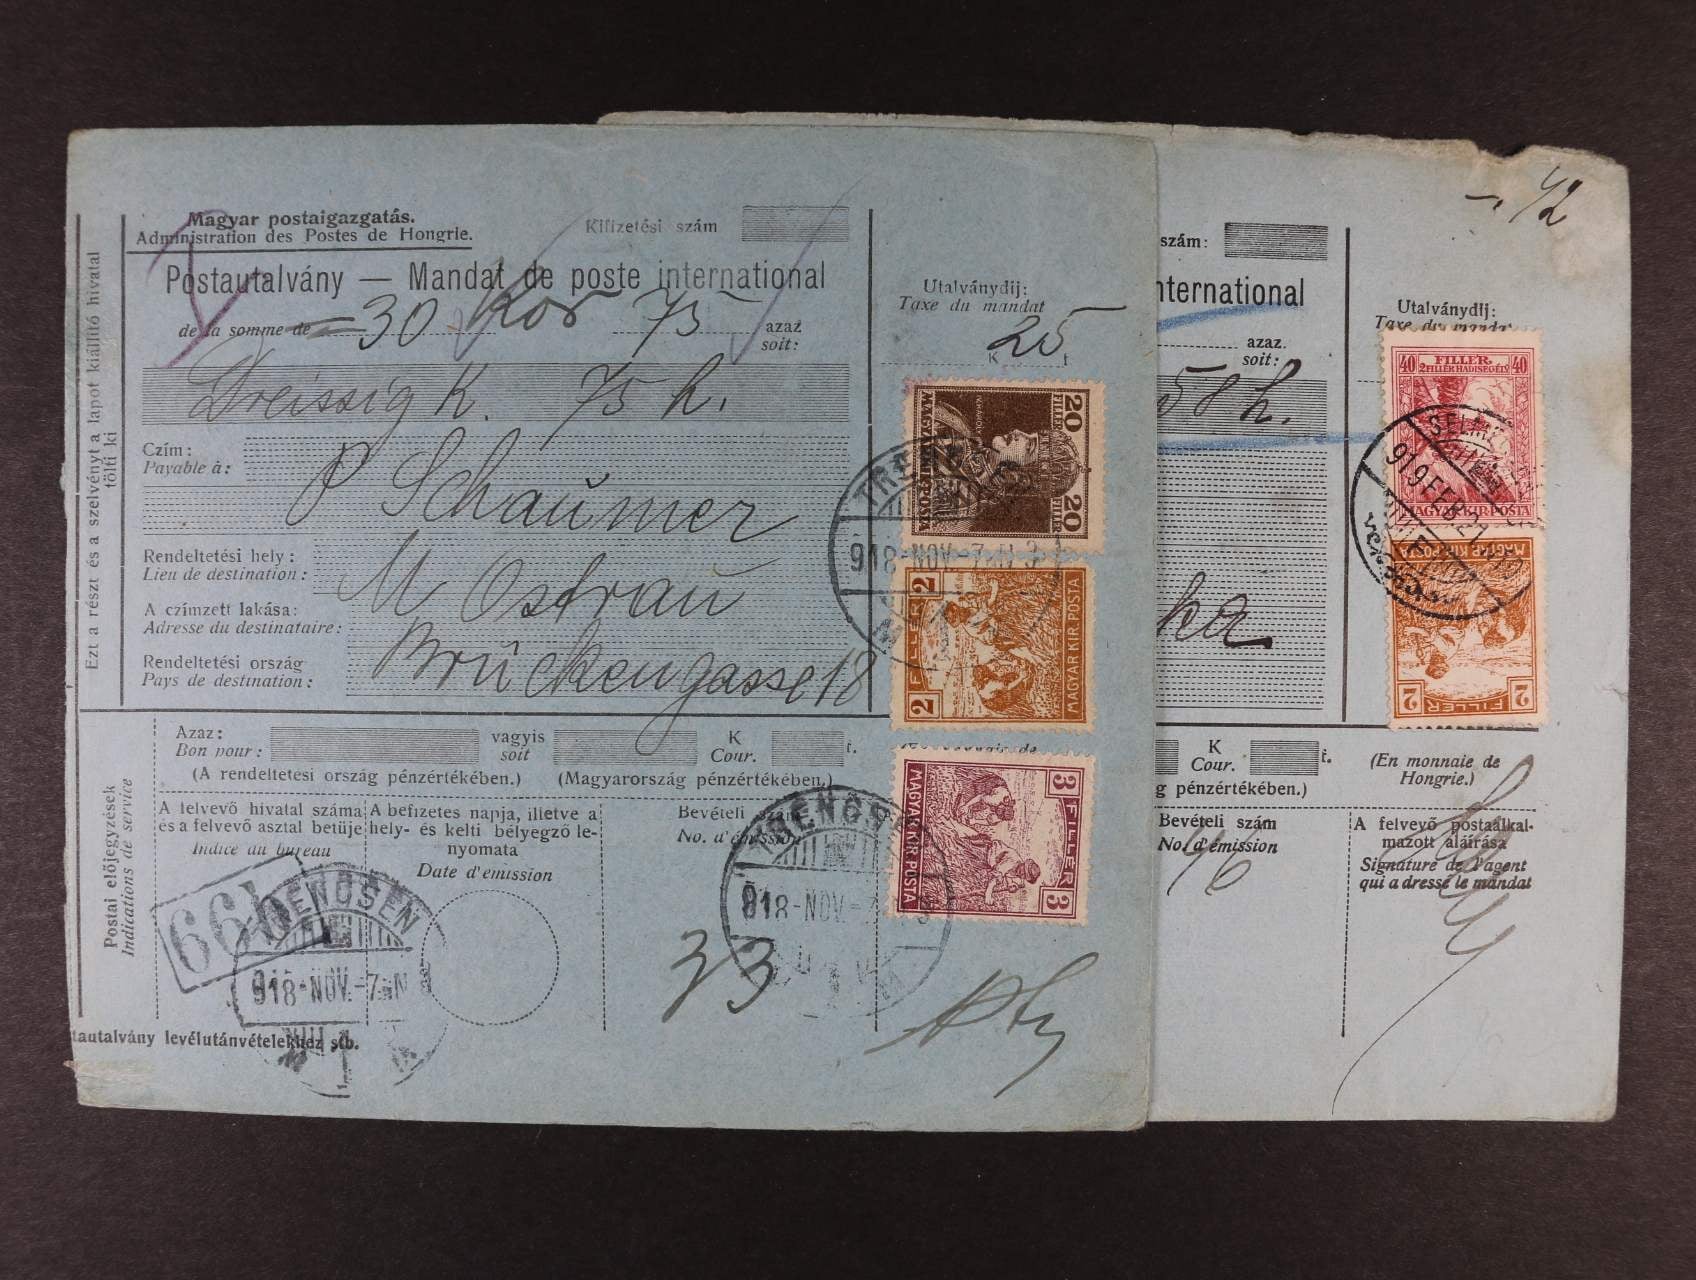 Magyar postaigazgatás.
Administration des Postes de Hongrie.
Kifizetési szám
Postautalvány — Mandat de poste international
de la somme de 30 Kor 75 azaz
soit:
Dreissig K. 75 h.
Czím:
Payable à:
P Schaumer
Rendeltetési hely:
Lieu de destination:
M Ostrau
A czímzett lakása:
Adresse du destinataire:
Brückengasse 18
Rendeltetési ország
Pays de destination:
Ezt a részt és a szelvényt a lapot kiállító hivatal
tölti ki
Utalványdíj:
Taxe du mandat
25
K f
20 FILLER 20 FILLER
MAGYAR KIR. POSTA
2 FILLER 2
MAGYAR KIR. POSTA
3 FILLER 3
MAGYAR KIR. POSTA
918-NOV.-7
Azaz:
Bon pour:
vagyis
soit
K
Cour.
f.
(A rendeltetési ország pénzértékében.) (Magyarország pénzértékében.)
Postai előjegyzések
Indications de service
A felvevő hivatal száma
és a felvevő asztal betüje
Indice du bureau
A befizetés napja, illetve a
hely- és kelti bélyegző le-
nyomata
Date d'émission
Bevételi
No. d'émission
66b
TRENCSÉN
918-NOV.-7
33
TRENCSÉN
918-NOV.-
tautalvány levélutánvételekhez stb.
-.42
szám:
nternational
azaz
soit:
58 h.
Utalványdíj:
Taxe du mandat
40 FILLER. 40
2 FILLER HADISEGÉLY
MAGYAR KIR. POSTA
919 FEB. 21
MAGYAR KIR. POSTA
2 FILLER 2
K
Cour.
f.
(En monnaie de
Hongrie.)
g pénzértékében.)
Bevételi szám
No. d'émission
46
A felvevő postaalkal-
mazott aláírása
Signature de l'agent
qui a dressé le mandat